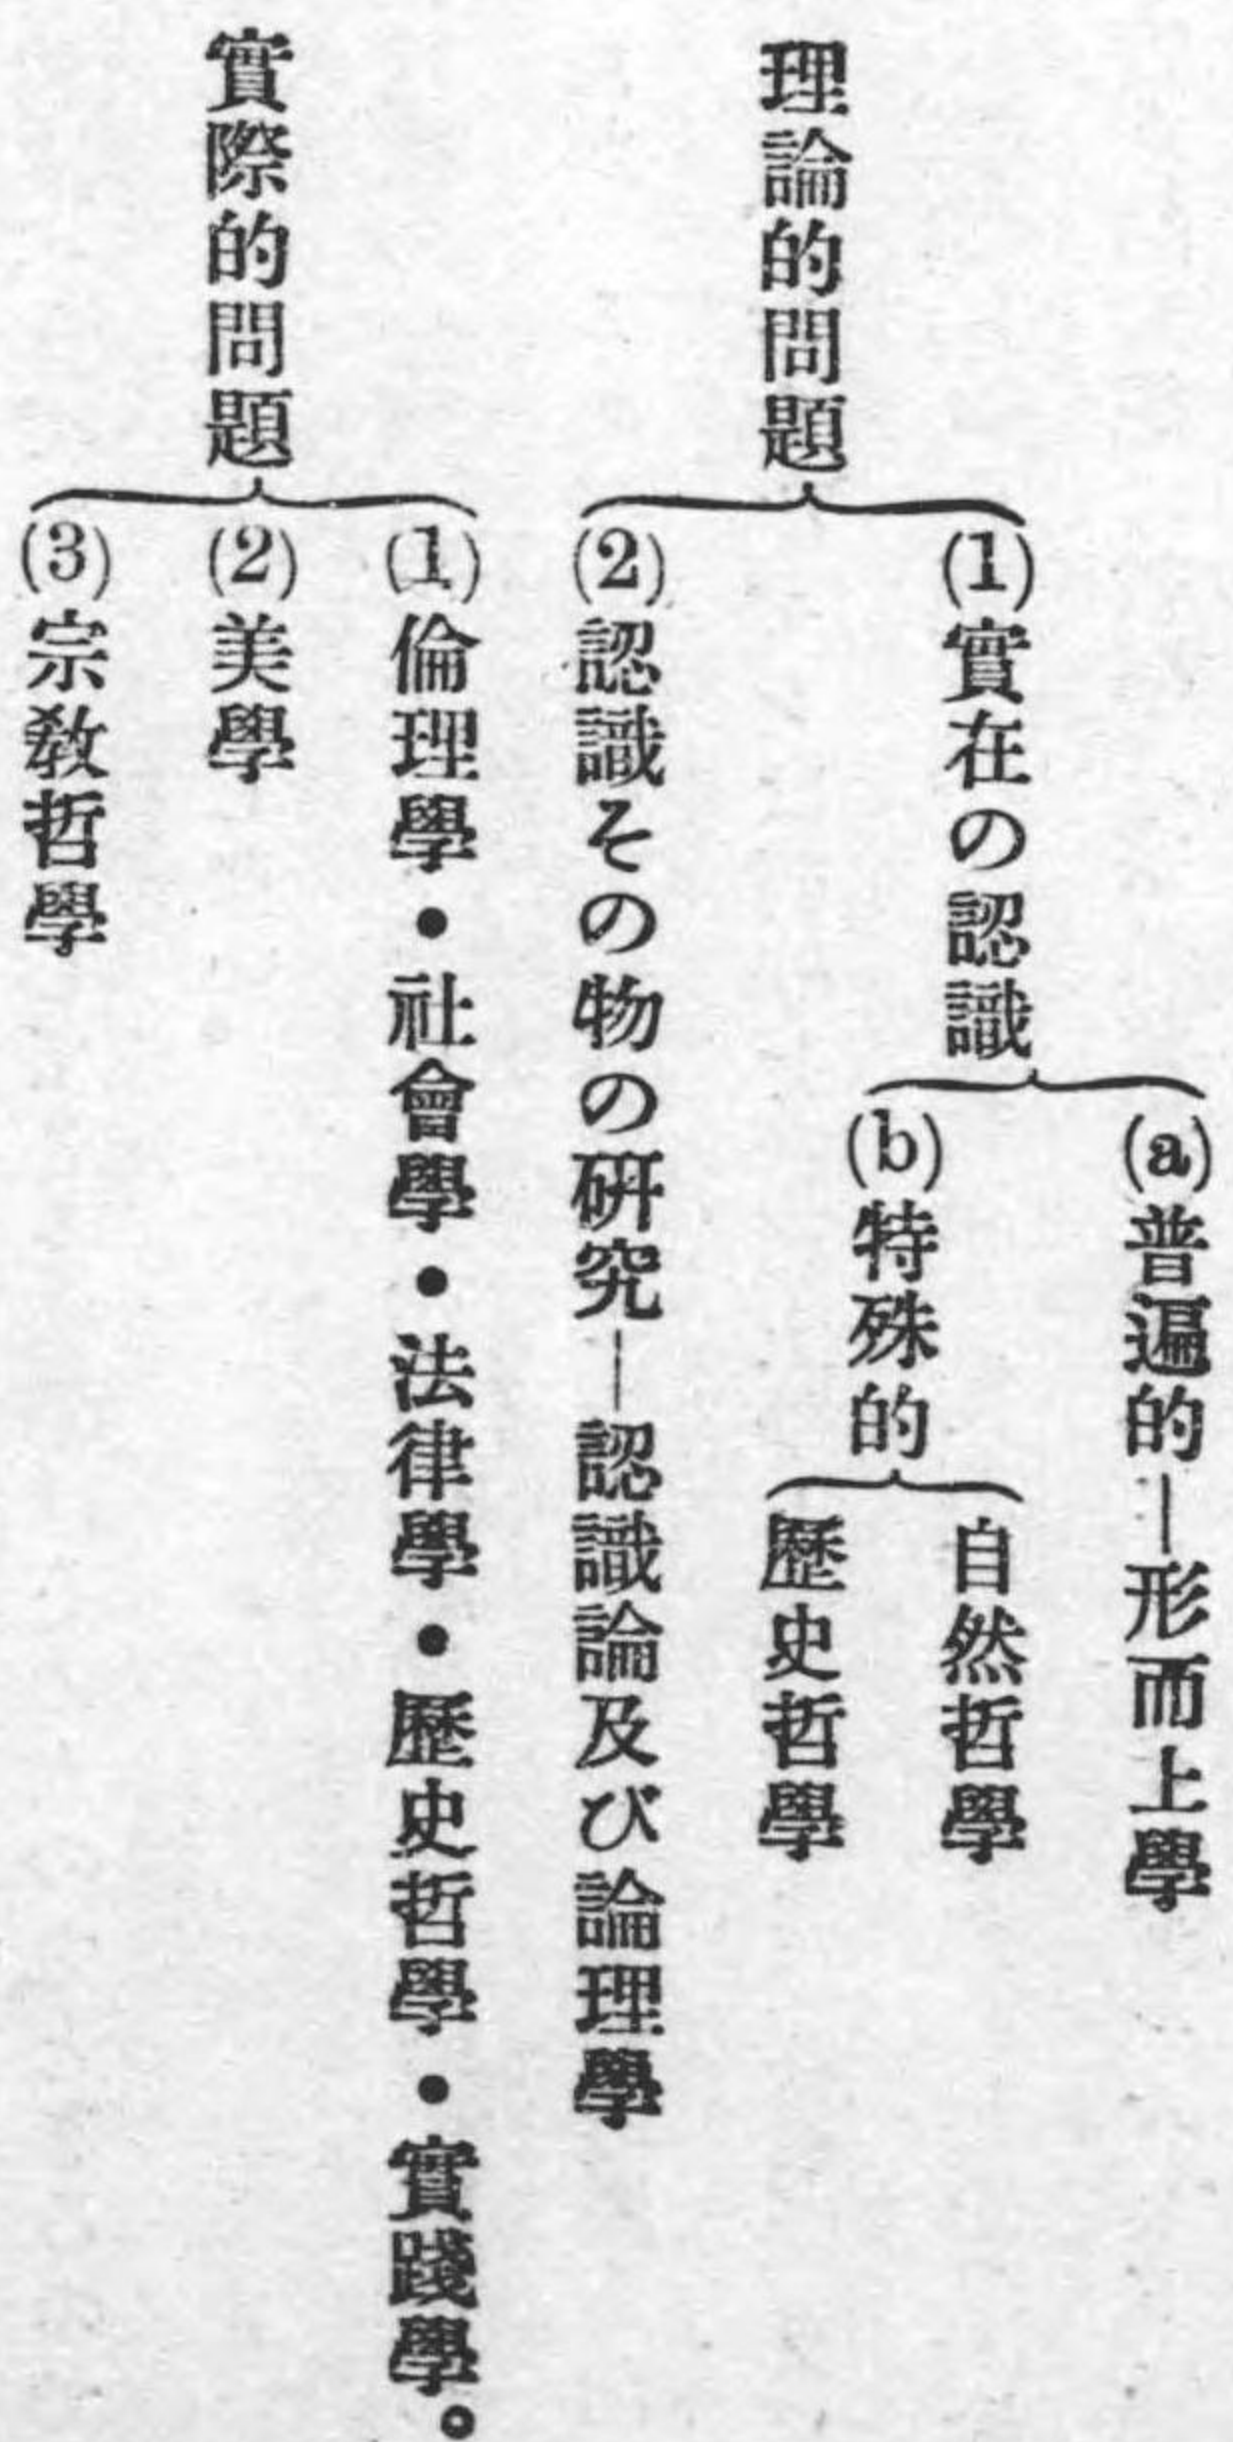 理論的問題
(1)實在の認識
(a)普遍的―形而上學
(b)特殊的
自然哲學
歷史哲學
(2)認識その物の硏究―認識論及び論理學
實際的問題
(1)倫理學・社會學・法律學・歷史哲學・實踐學。
(2)美學
(3)宗敎哲學